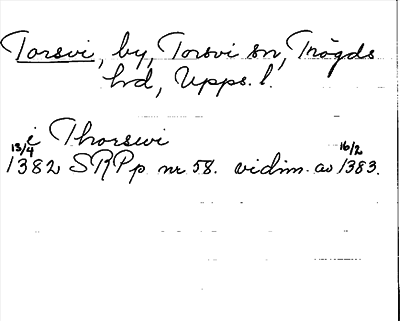 Torsvi, by, Torsvi sn, Trögds
hd, Upps. l.
i Thorswi
13/4 16/2
1382 SRPp nr 58. vidim. av 1383.